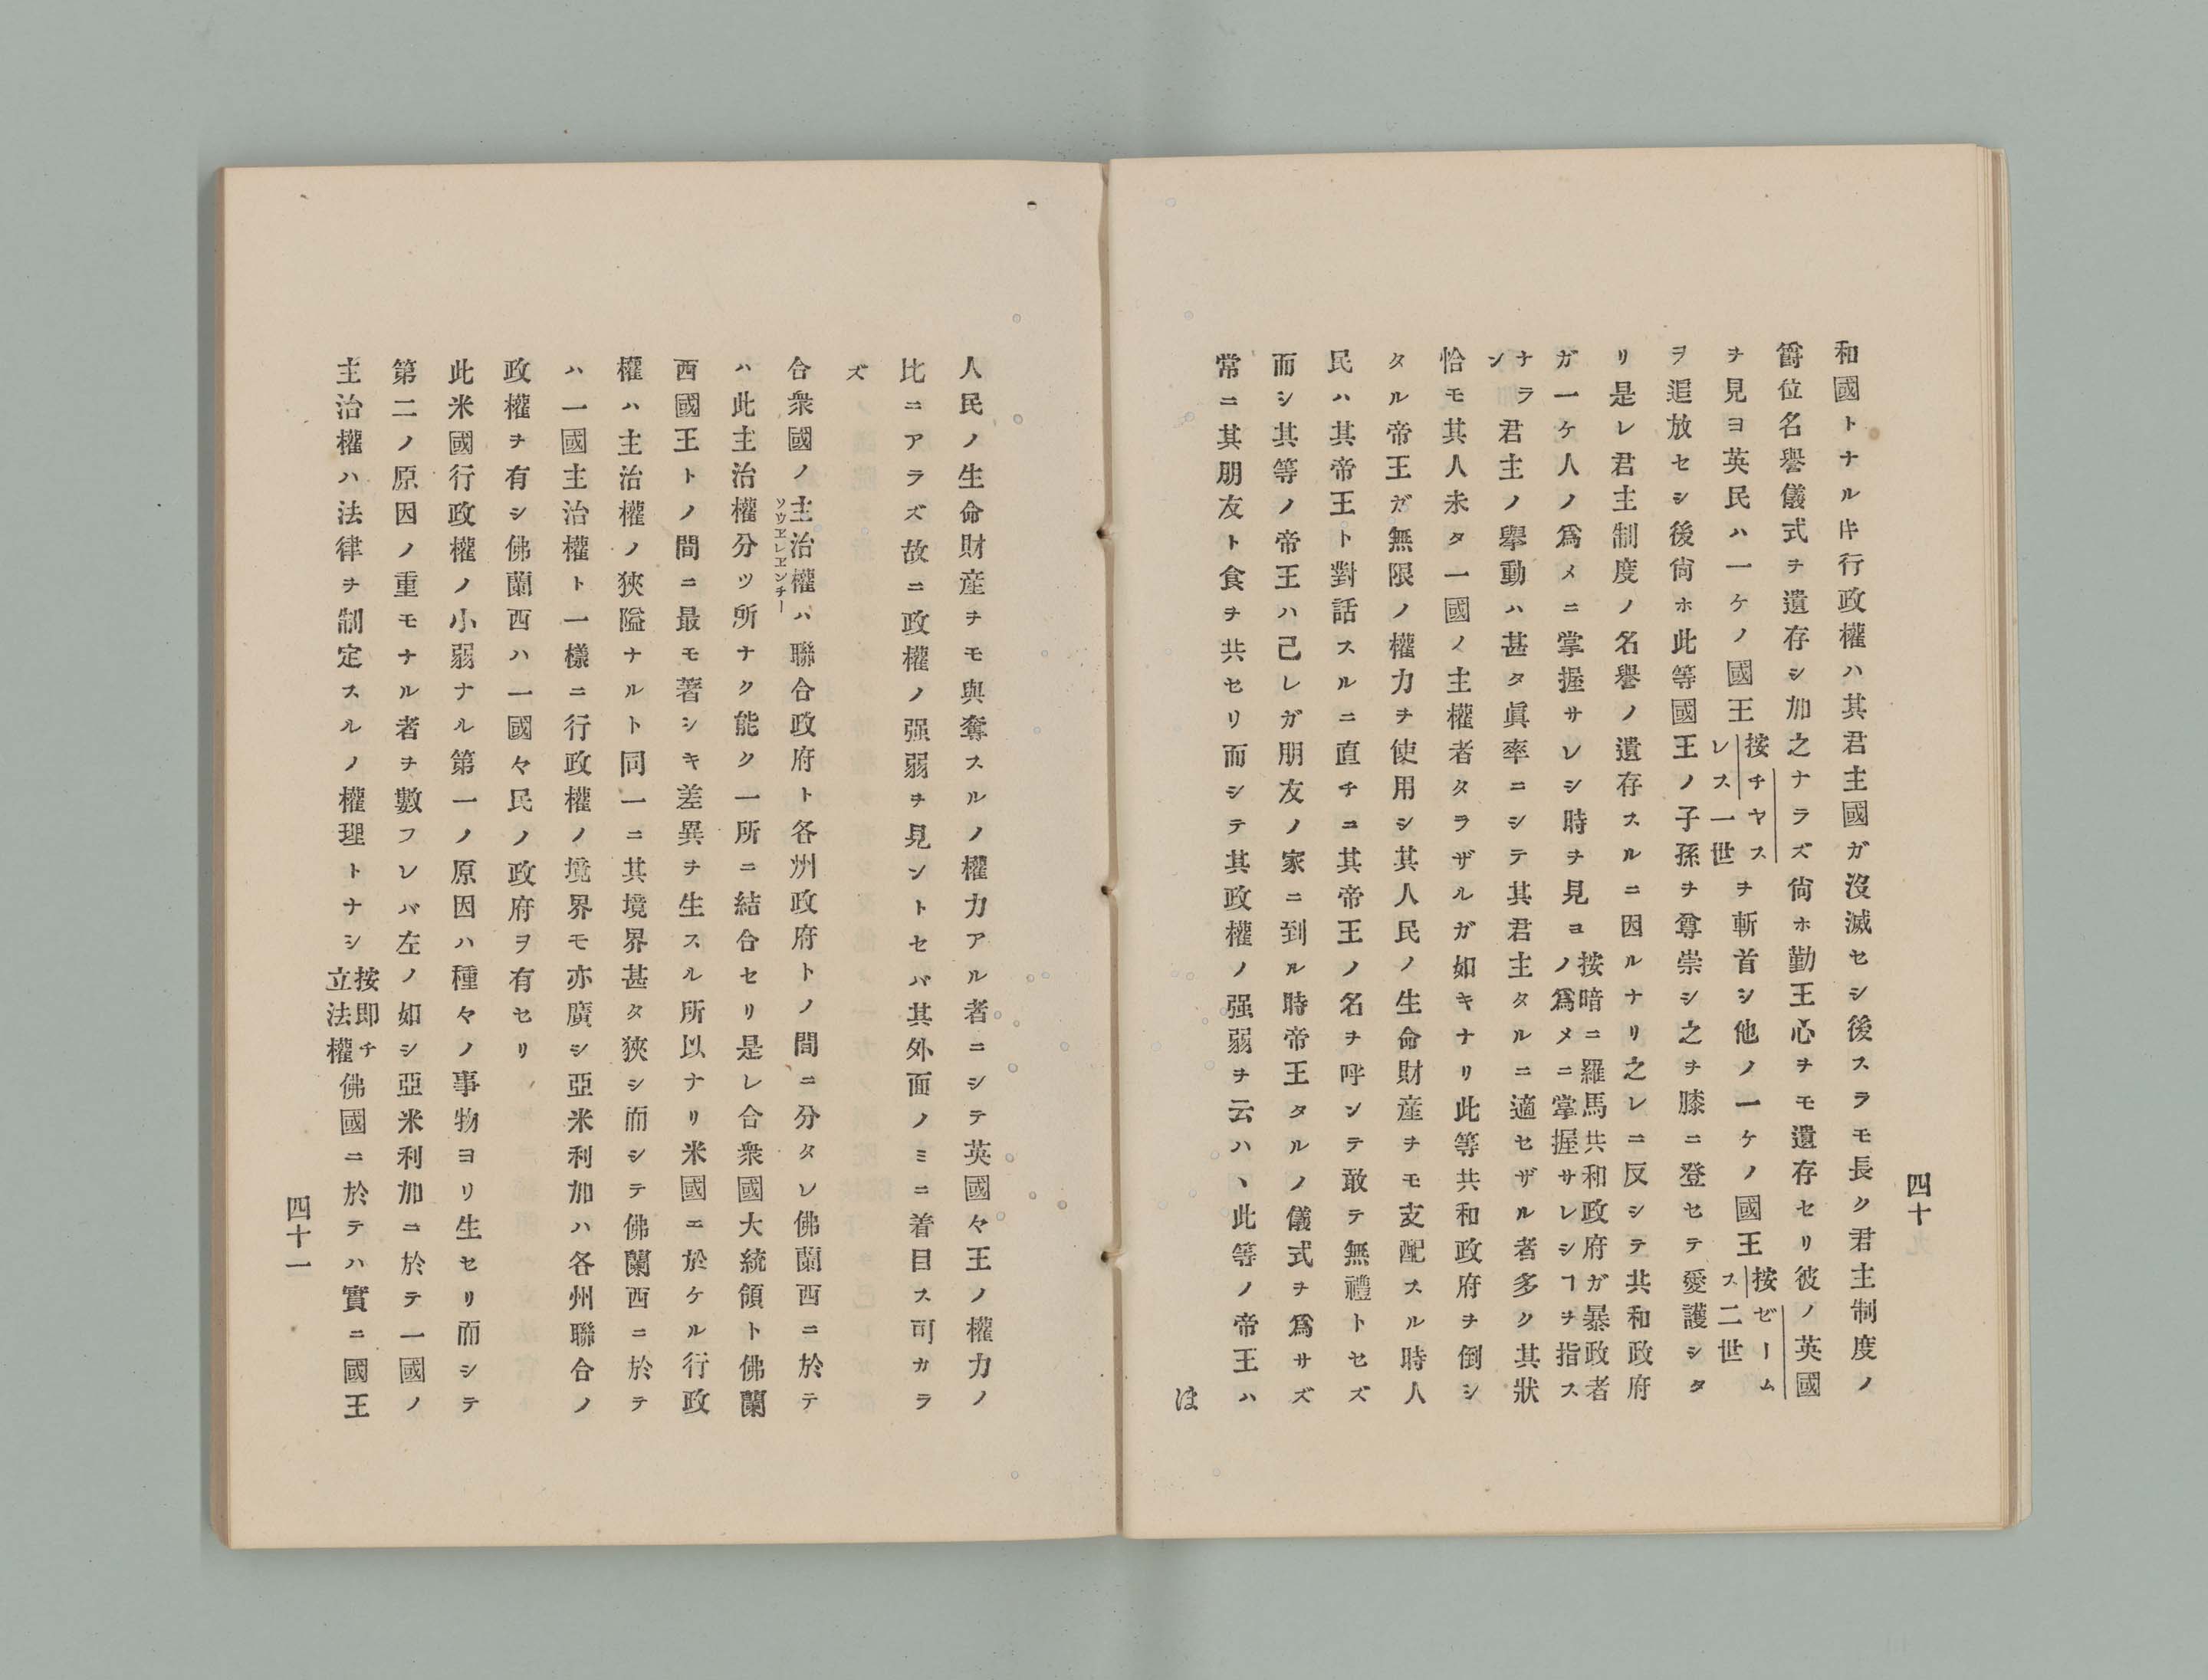 四十
和國トナルキ行政權ハ其君主國ガ沒滅セシ後スラモ長ク君主制度ノ
爵位名譽儀式ヲ遺存シ加之ナラズ尙ホ勤王心ヲモ遺存セリ彼ノ英國
ヲ見ヨ英民ハ一ケノ國王按チヤスレス一世ヲ斬首シ他ノ一ケノ國王按ゼームス二世
ヲ追放セシ後尙ホ此等國王ノ子孫ヲ尊崇シ之ヲ膝ニ登セテ愛護シタ
リ是レ君主制度ノ名譽ノ遺存スルニ因ルナリ之レニ反シテ共和政府
ガ一ケ人ノ爲メニ掌握サレシ時ヲ見ヨ按暗ニ羅馬共和政府ガ暴政者ノ爲メニ掌握サレシヿヲ指スナラン
君主ノ擧動ハ甚タ眞率ニシテ其君主タルニ適セザル者多ク其狀
恰モ其人未タ一國ノ主權者タラザルガ如キナリ此等共和政府ヲ倒シ
タル帝王ガ無限ノ權力ヲ使用シ其人民ノ生命財産ヲモ支配スル時人
民ハ其帝王ト對話スルニ直チニ其帝王ノ名ヲ呼ンテ敢テ無禮トセズ
而シ其等ノ帝王ハ己レガ朋友ノ家ニ到ル時帝王タルノ儀式ヲ爲サズ
常ニ其朋友ト食ヲ共セリ而シテ其政權ノ强弱ヲ云ハヽ此等ノ帝王ハ
ほ
人民ノ生命財産ヲモ與奪スルノ權力アル者ニシテ英國々王ノ權力ノ
比ニアラズ故ニ政權ノ强弱ヲ見ントセバ其外面ノミニ着目ス可カラ
ズ
合衆國ノ主治權ハ聯合政府ト各州政府トノ間ニ分タレ佛蘭西ニ於テ
ソウヱレヱンチー
ハ此主治權分ツ所ナク能ク一所ニ結合セリ是レ合衆國大統領ト佛蘭
西國王トノ間ニ最モ著シキ差異ヲ生スル所以ナリ米國ニ於ケル行政
權ハ主治權ノ狹隘ナルト同一ニ其境界甚タ狹シ而シテ佛蘭西ニ於テ
ハ一國主治權ト一樣ニ行政權ノ境界モ亦廣シ亞米利加ハ各州聯合ノ
政權ヲ有シ佛蘭西ハ一國々民ノ政府ヲ有セリ
此米國行政權ノ小弱ナル第一ノ原因ハ種々ノ事物ヨリ生セリ而シテ
第二ノ原因ノ重モナル者ヲ數フレバ左ノ如シ亞米利加ニ於テ一國ノ
主治權ハ法律ヲ制定スルノ權理トナシ按即チ立法權佛國ニ於テハ實ニ國王
四十一